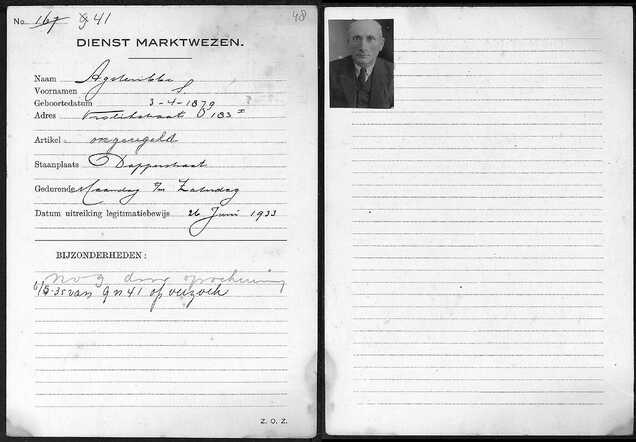 No. 167 g 41 48
DIENST MARKTWEZEN.
Naam Agsteribbe
Voornamen S.
Geboortedatum 3-4-1879
Adres 183 I
Artikel: ongeregeld
Staanplaats Dapperstraat
Gedurende Maandag t/m Zaterdag
Datum uitreiking legitimatiebewijs 26 Juni 1933
BIJZONDERHEDEN:
nog door
van 9 n 41 op verzoek
Z. O. Z.